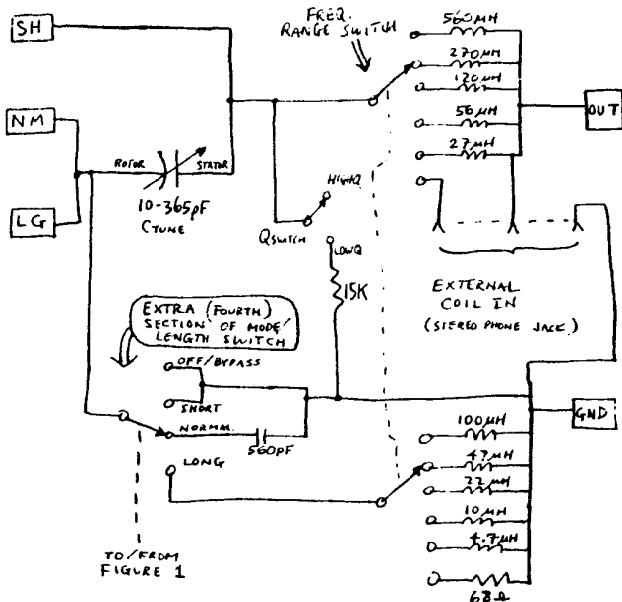 SH
FREQ.
RANGE SWITCH
560µH
270µH
120µH
56µH
27µH
OUT
NM
ROTOR
STATOR
10-365pF
CTUNE
LG
HIGHQ
QSWITCH
LOWQ
15K
EXTERNAL
COIL IN
(STEREO PHONE JACK)
EXTRA (FOURTH)
SECTION OF MODE/
LENGTH SWITCH
OFF/BYPASS
SHORT
NORMM.
560PF
LONG
GND
100µH
47µH
22µH
10µH
4.7µH
68Ω
TO/FROM
FIGURE 1